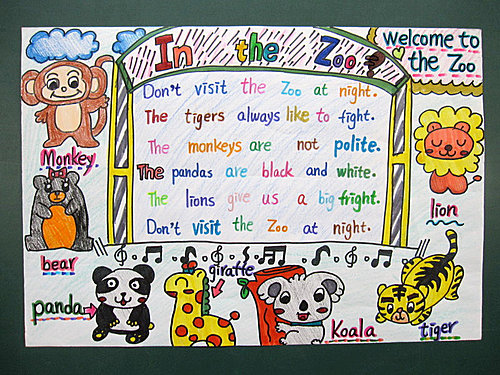 In the Zoo
welcome to
the Zoo
Don't visit the Zoo at night.
The tigers always like to fight.
The monkeys are not polite.
The pandas are black and white.
The lions give us a big fright.
Don't visit the Zoo at night.
Monkey
lion
bear
giraffe
panda
Koala
tiger